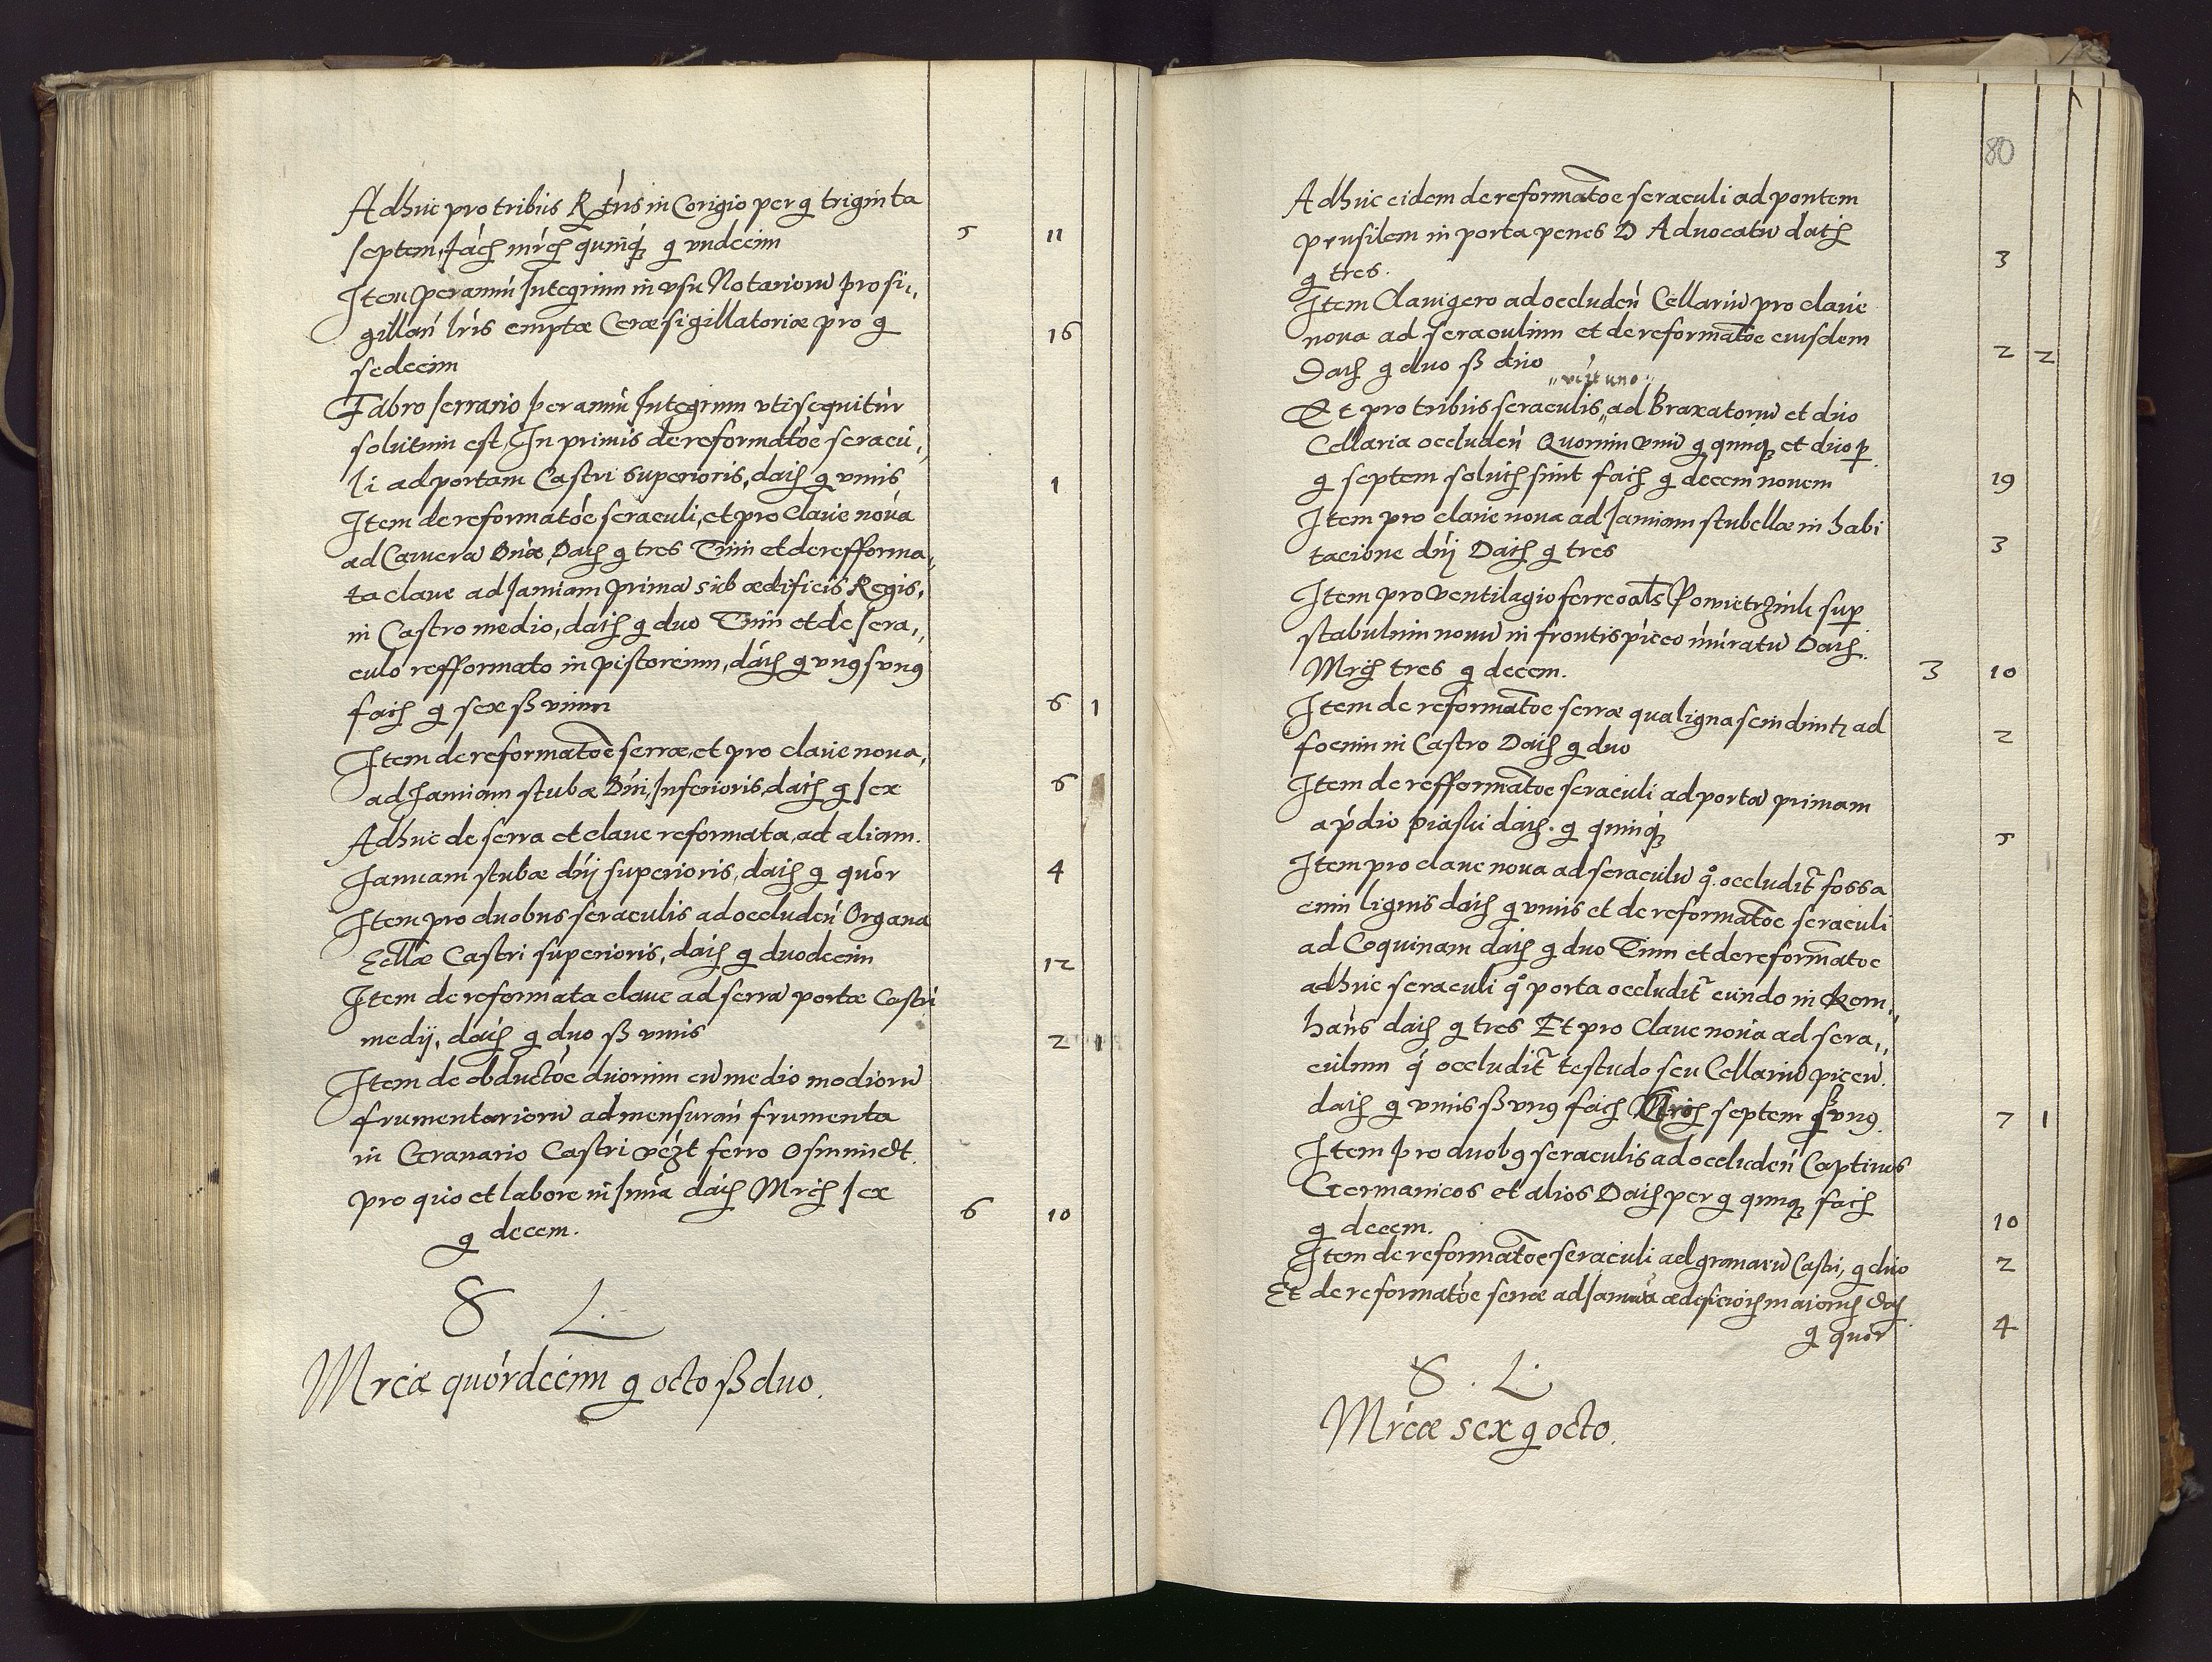 Adhuc pro tribus R in Corigio per g triginta
septem, facit mrch quinq g undecim 5 11
Item per annu Integrum in vsu Notarioru pro si,,
gillan lris emptæ Ceræ sigillatoriæ pro g 16
sedecim
Fabro serrario per annu Integrum vti sequitur
solutum est, In primis de reformatoe seracu,,
li ad portam Castri superioris, datis g vnus 1
Item de reformatoe seraculi, et pro Claue noua
ad Camera Dnæ, Datis g tres Tum et de refforma,,
ta claue ad Januam prima sub ædificiis Regis,
in Castro medio, datis g duo Tum et de sera,,
culo refformato in pistoreum, datis g vng s vng
facit g sex ß vnum 6 1
Item de reformatoe serræ, et pro claue noua,
ad Januam stubæ Dni, Inferioris, datis g sex 6
Adhuc de serra et claue reformata, ad aliam.
Januam stubæ dnj superioris, datis g quor 4
Item pro duobus seraculis ad occluden Organa
Ecllæ Castri superioris, datis g duodecim 12
Item de reformata claue ad serra portæ Castri
medij, datis g duo ß vnus 2 1
Item de obductoe duorum cu medio modioru
frumentarioru ad mensuran frumenta
in Granario Castri ferro Osmundt.
pro quo et labore in suma datis Mrch sex 6 10
g decem.
S L
Mrcæ quordecim g octo ß duo.
80
Adhuc eidem de reformatoe seraculi ad pontem
prusilem in porta penes D Aduocatu datis
g tres. 3
Item Clauigero ad occluden Cellariu pro claue
noua ad seraculum et de reformatoe eiusdem
Datis g duo ß duo 2 2
Et pro tribus seraculis,, ad Braxatoriu et duo
Cellaria occluden Quorum vnu g quinq et duo p
g septem soluti sunt facit g decem nouem 19
Item pro claue noua ad Januam stubellæ in habi
tacione dnj Datis g tres 3
Item pro ventilagio ferreo als sup
stabulum nouu in frontispiceo muratu Datis
Mrch tres g decem. 3 10
Item de reformatoe serræ qua ligna scindunt ad
foenum in Castro Datis g duo 2
Item de refformatoe seraculi ad porta primam
a pdio datis. g quinq 5
Item pro claue noua ad seraculu q occludit fossa
cum lignis datis g vnus et de reformatoe seraculi
ad Coquinam datis g duo Tum et de reformatoe
adhuc seraculi q porta occludit eundo in Korn,,
haus datis g tres Et pro Claue noua ad sera,,
culum q occludit testudo seu Cellariu piceu.
datis g vnus ß vng facit Mrch septem ß vng. 7 1
Item pro duobg seraculis ad occluden Captiuos
Germanicos et alios Datis per g quinq facit
g decem. 10
Item de reformatoe seraculi ad granariu Castri, g duo 2
Et de reformatoe serræ ad Janua ædificioru maioru dat
g quor 4
S. L.
Mrcæ sex g octo.